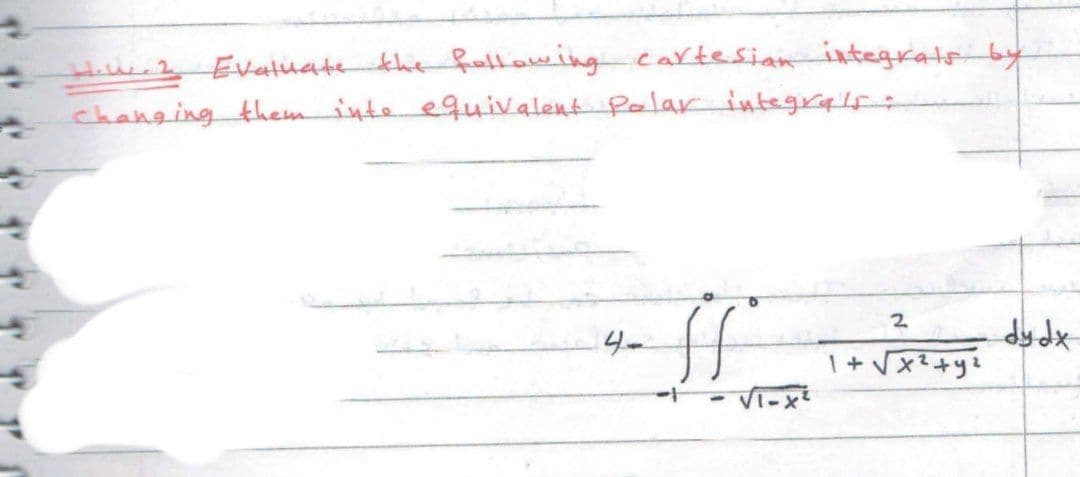 H.W.2 Evaluate the following cartesian integrals by
changing them into equivalent Polar integrals :
4- ∫_{-1}^{0} ∫_{-√(1-x²)}^{0} 2 / (1 + √(x²+y²)) dy dx